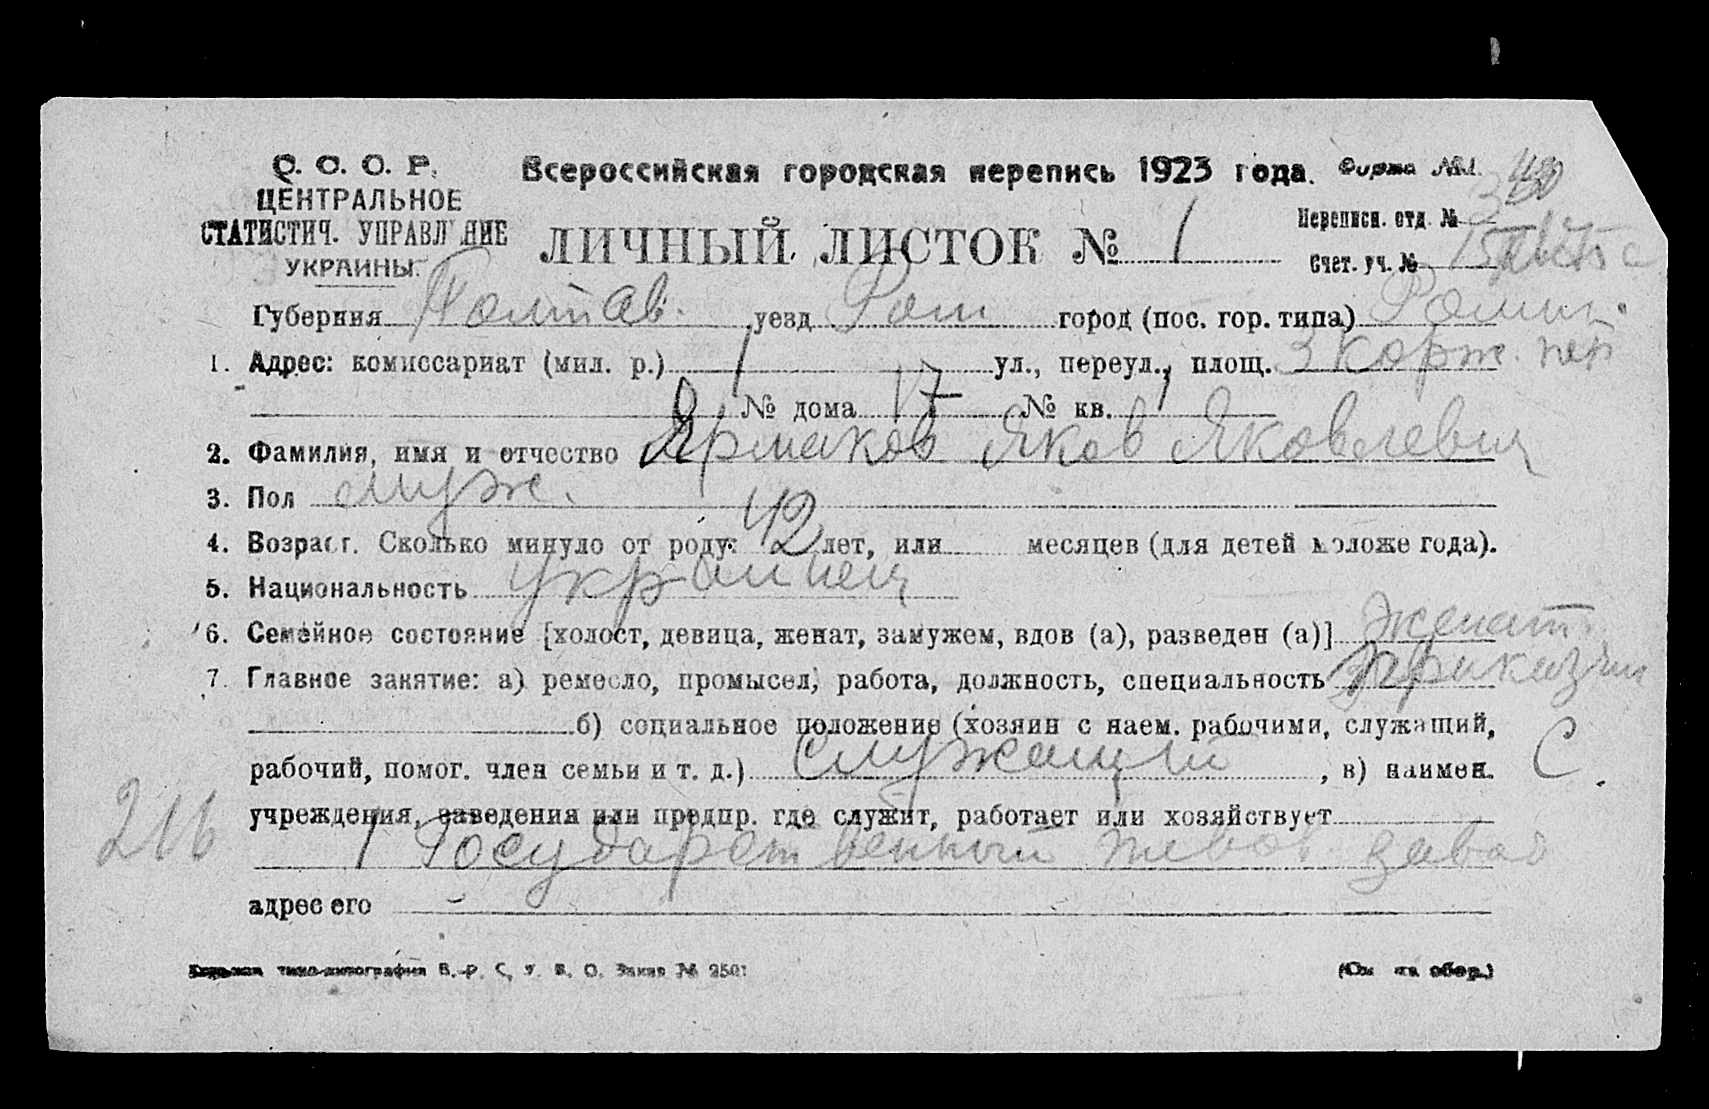 С. С. С. Р.
ЦЕНТРАЛЬНОЕ
СТАТИСТИЧ. УПРАВЛЕНИЕ
УКРАИНЫ.
Всероссийская городская перепись 1923 года. Форма №1.
ЛИЧНЫЙ ЛИСТОК № 1
Переписн. отд. №
Счет. уч. №
Губерния Полтав. уезд Ром город (пос. гор. типа) Ромны.
1. Адрес: комиссариат (мил. р.) 1 ул., переул., площ. 3 Корж. пер
№ дома 17 № кв. 1
2. Фамилия, имя и отчество Ярмаков Яков Яковлевич
3. Пол муж.
4. Возраст. Сколько минуло от роду: 42 лет, или месяцев (для детей моложе года).
5. Национальность украинец
6. Семейное состояние [холост, девица, женат, замужем, вдов (а), разведен (а)] женат
7. Главное занятие: а) ремесло, промысел, работа, должность, специальность приказчик
б) социальное положение (хозяин с наем. рабочими, служащий,
рабочий, помог. член семьи и т. д.) служащий , в) наимен. С
учреждения, заведения или предпр. где служит, работает или хозяйствует
216 1 Государственный пивов завод
адрес его -
типо-литография В.-Р. С. У. В. О. Заказ № 2501
(См на обор.)